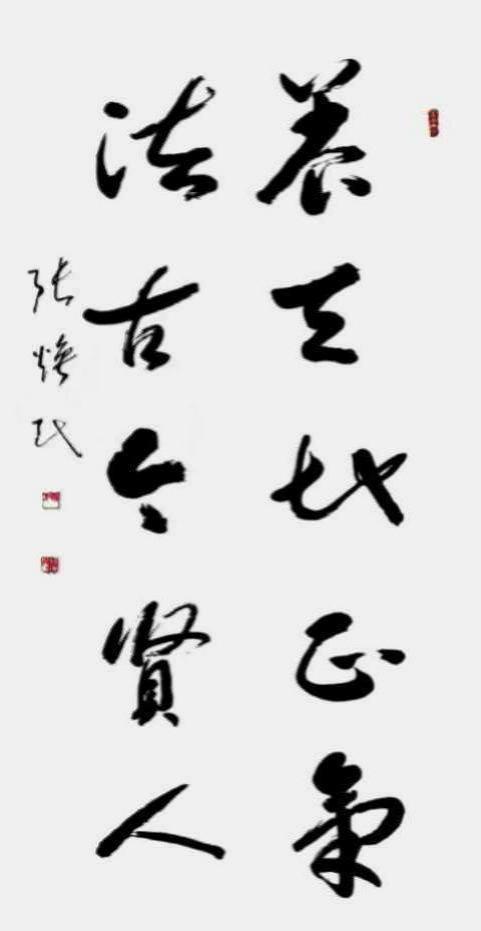 養天地正氣
法古今賢人
张焕民